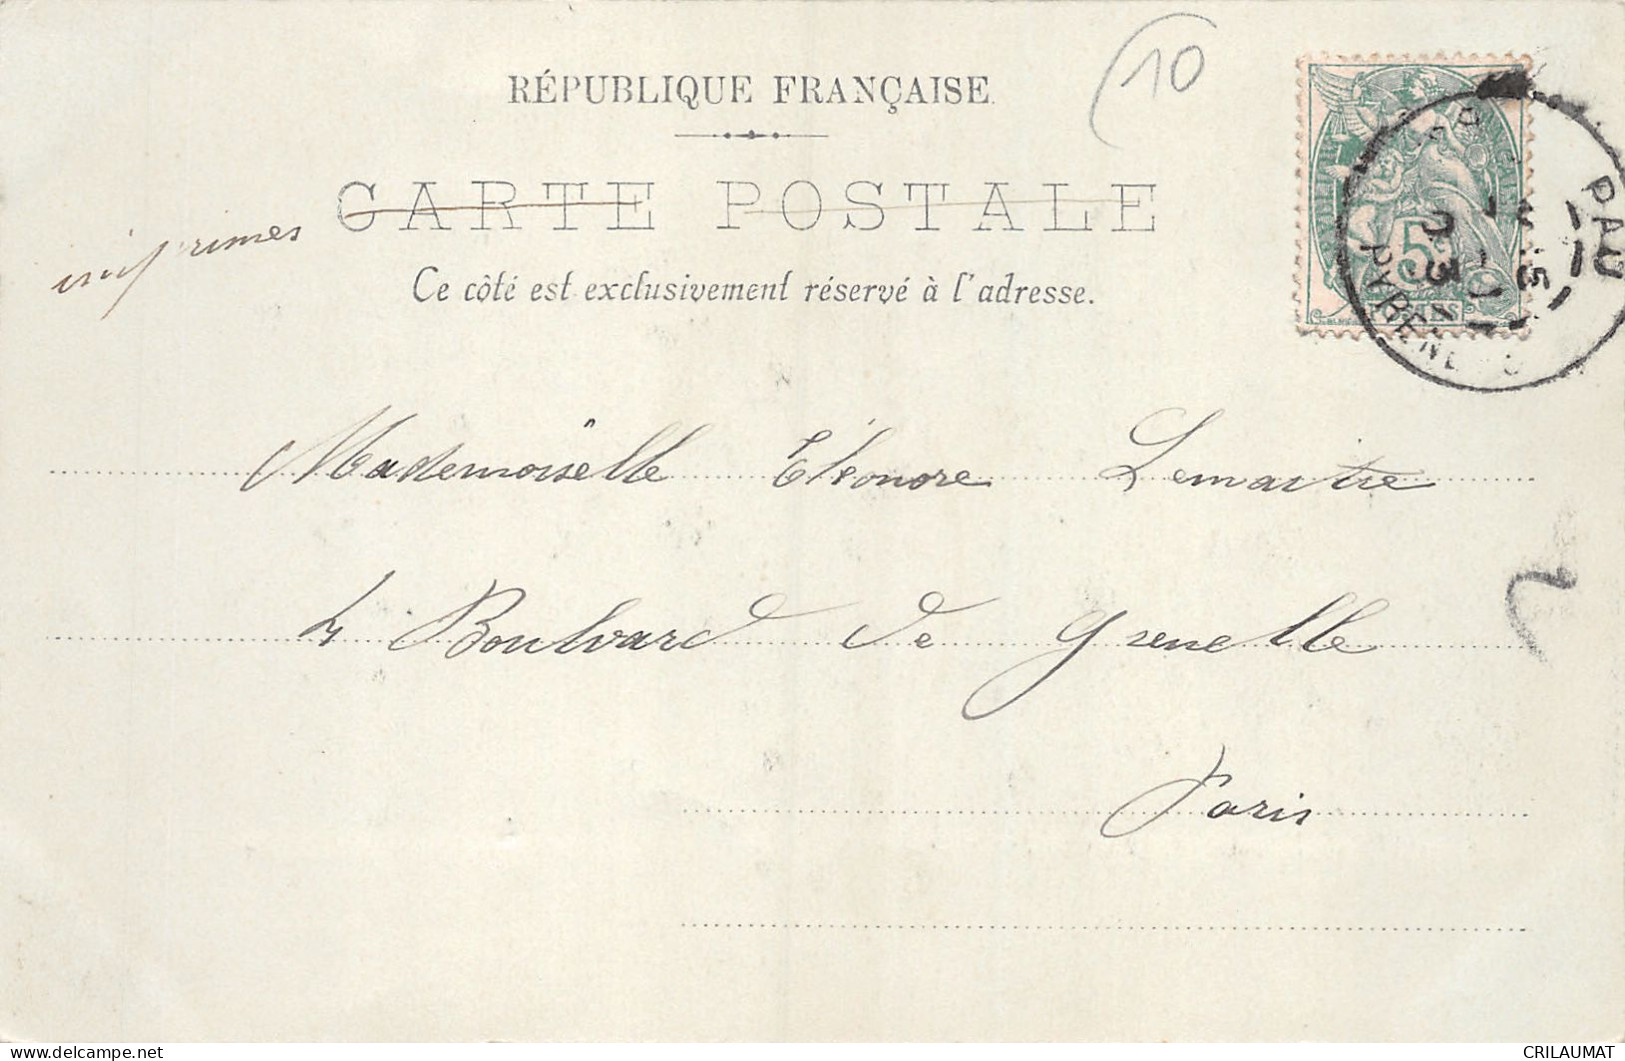 RÉPUBLIQUE FRANÇAISE
10
CARTE POSTALE
imprimes
Ce côté est exclusivement réservé à l'adresse.
5
PAU
PYRENE
Mademoiselle Eléonore Lemaitre
4 Boulvard de Grenelle
2
Paris
CRILAUMAT